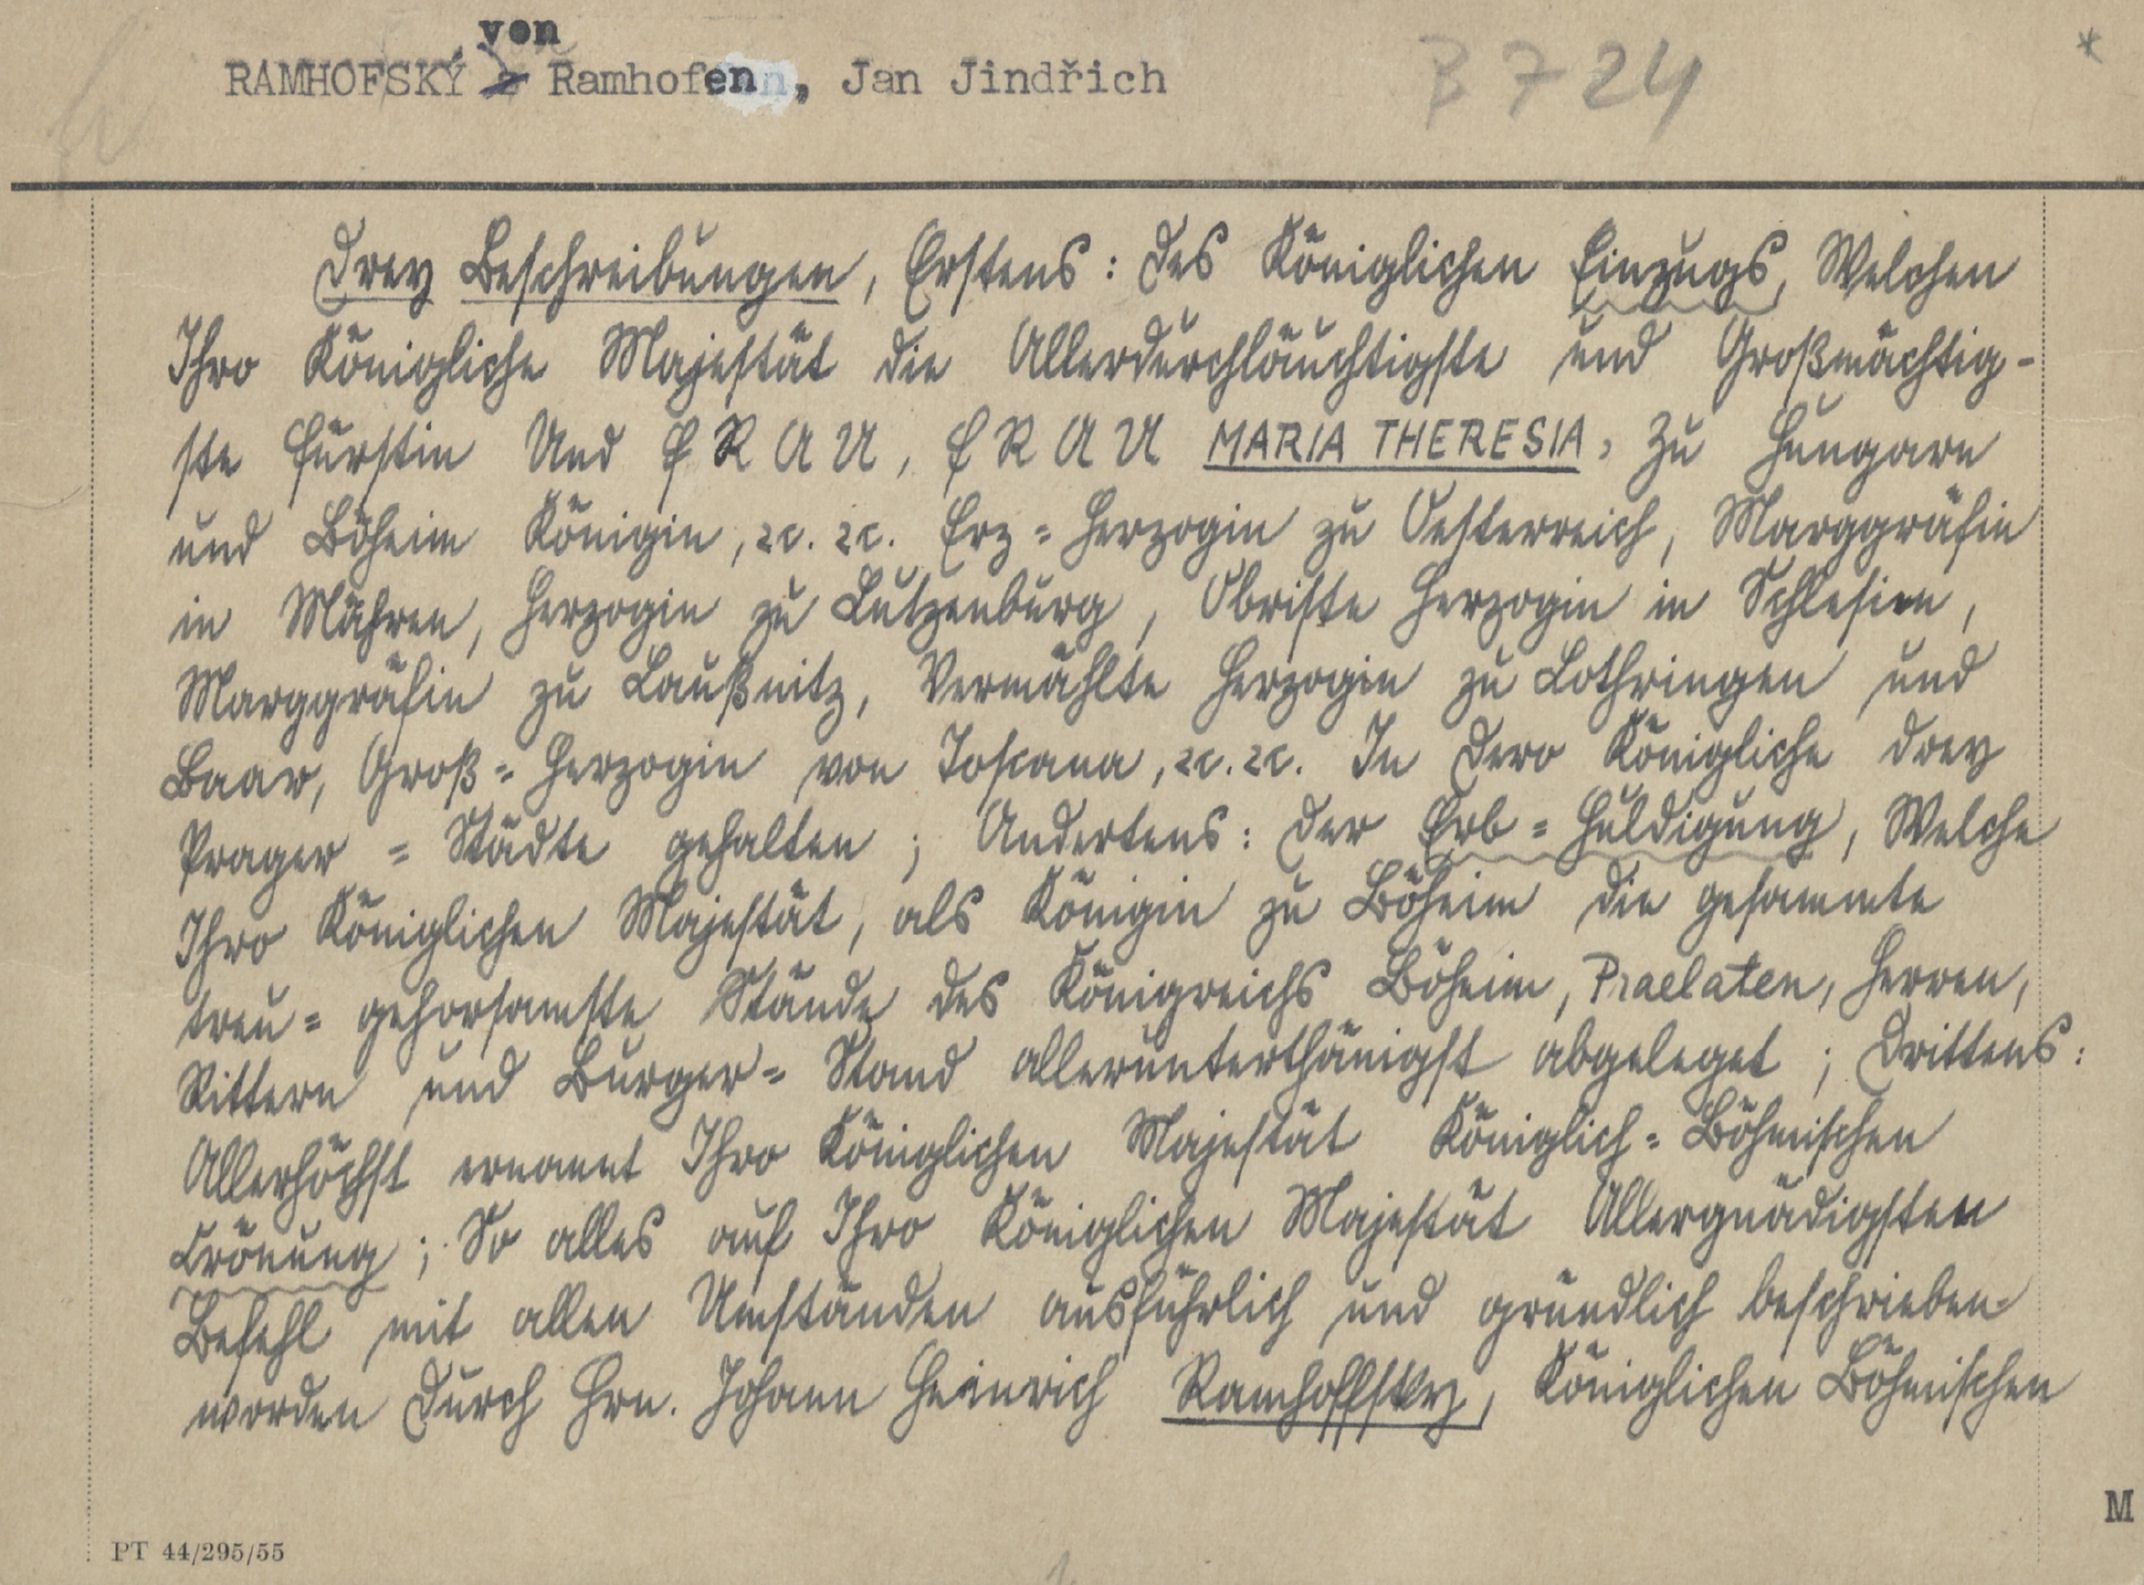 von
RAMHOFSKÝ z Ramhofen, Jan Jindřich
B 724
*
Drey Beschreibungen, Erstens: Des Königlichen Einzugs, Welchen
Ihro Königliche Majestät die Allerdurchläuchtigste und Großmächtig-
ste Fürstin Und FRAU, FRAU MARIA THERESIA, Zu Hungarn
und Böheim Königin, ꝛc. ꝛc. Erz = Herzogin zu Oesterreich, Marggräfin
in Mähren, Herzogin zu Lutzenburg, Obriste Herzogin in Schlesien,
Marggräfin zu Laußnitz, Vermählte Herzogin zu Lothringen und
Baar, Groß = Herzogin von Toscana, ꝛc. ꝛc. In Dero Königliche drey
Prager = Städte gehalten; Andertens: Der Erb = Huldigung, Welche
Ihro Königlichen Majestät, als Königin zu Böheim die gesammte
treu = gehorsamste Stände des Königreichs Böheim, Praelaten, Herren,
Rittern und Burger = Stand allerunterthänigst abgeleget; Drittens:
Allerhöchst ernannt Ihro Königlichen Majestät Königlich = Böhmischen
Crönung; So alles auf Ihro Königlichen Majestät Allergnädigsten
Befehl mit allen Umständen ausführlich und gründlich beschrieben
worden Durch Hrn. Johann Heinrich Ramhoffsky, Königlichen Böhmischen
M
PT 44/295/55